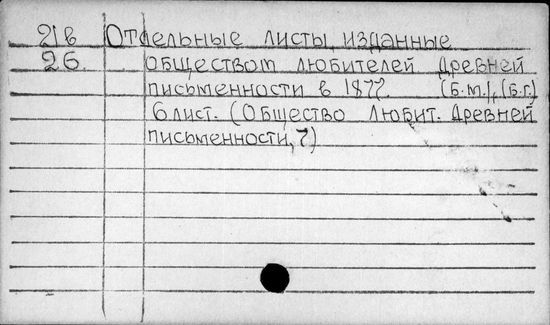 21в Отдельные листы, изданные
26. обществом любителей древней
письменности в 1877 (б.м.), (б.г.)
6 лист. (Общество любит. древней
письменности, 7)